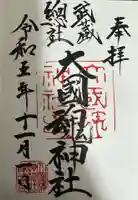 奉拝
武蔵
總社
大國魂神社
令和五年十一月